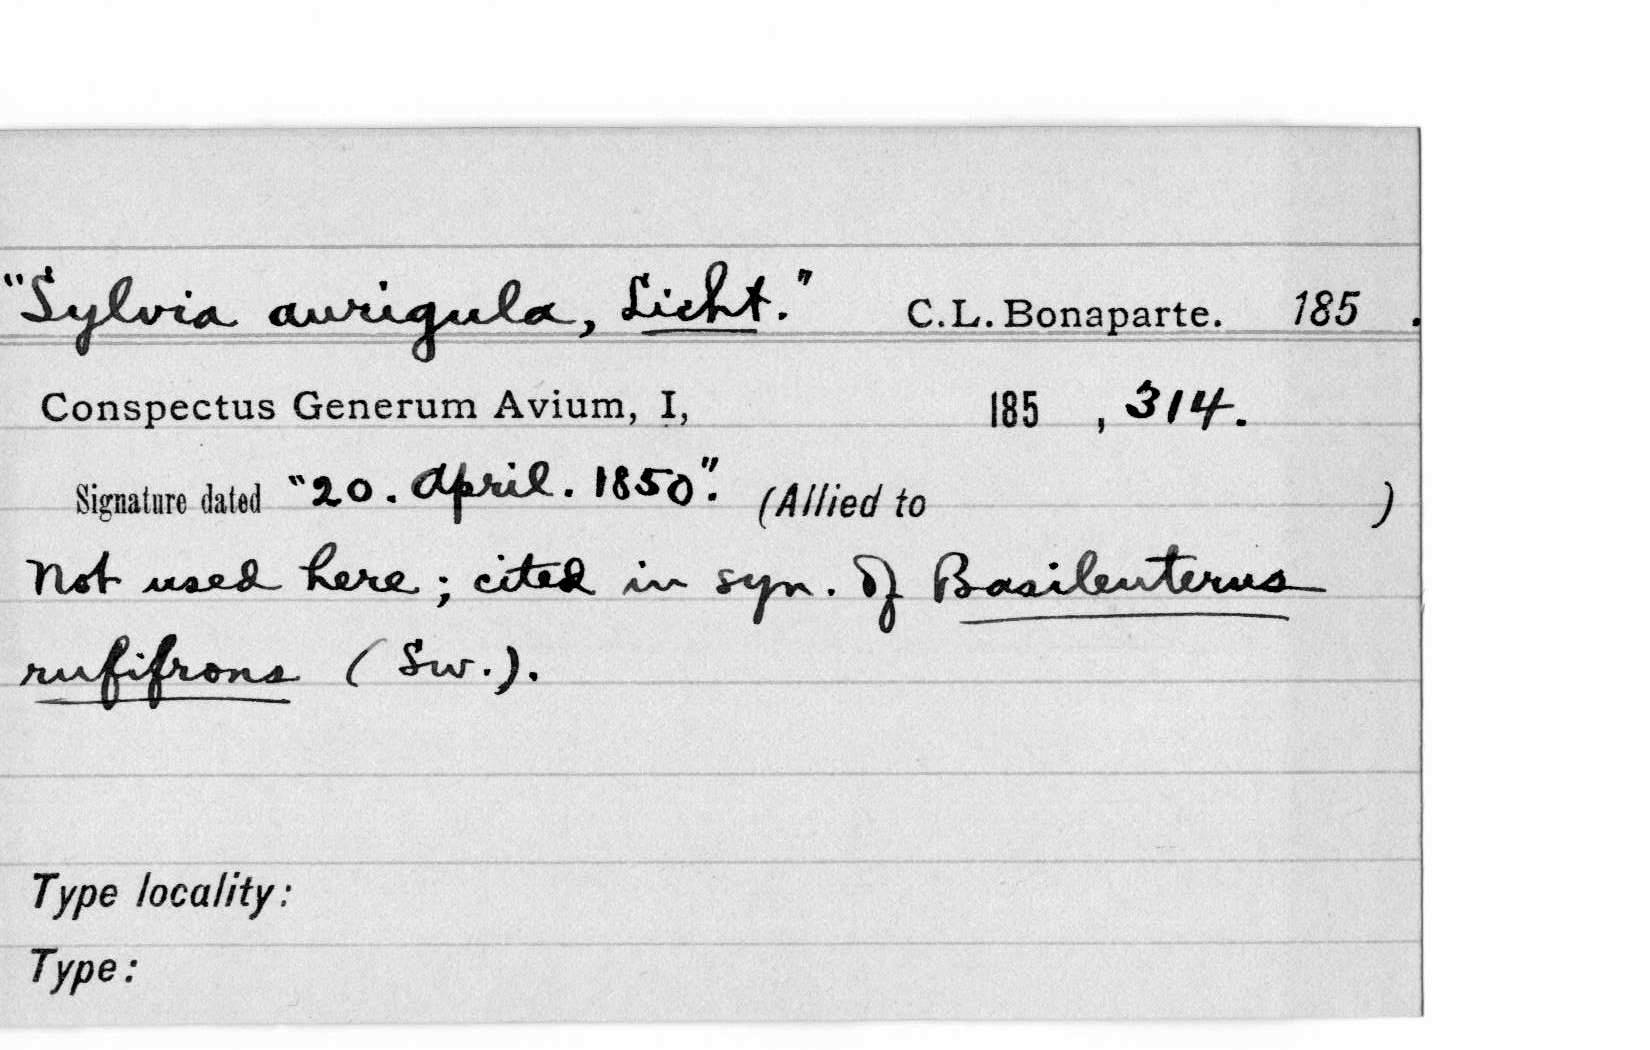 "Sylvia aurigula, Licht." C.L. Bonaparte. 185 .
Conspectus Generum Avium, I, 185 , 314.
Signature dated "20. April. 1850". (Allied to )
Not used here; cited in syn. of Basileuterus
rufifrons (Sw.).
Type locality:
Type: